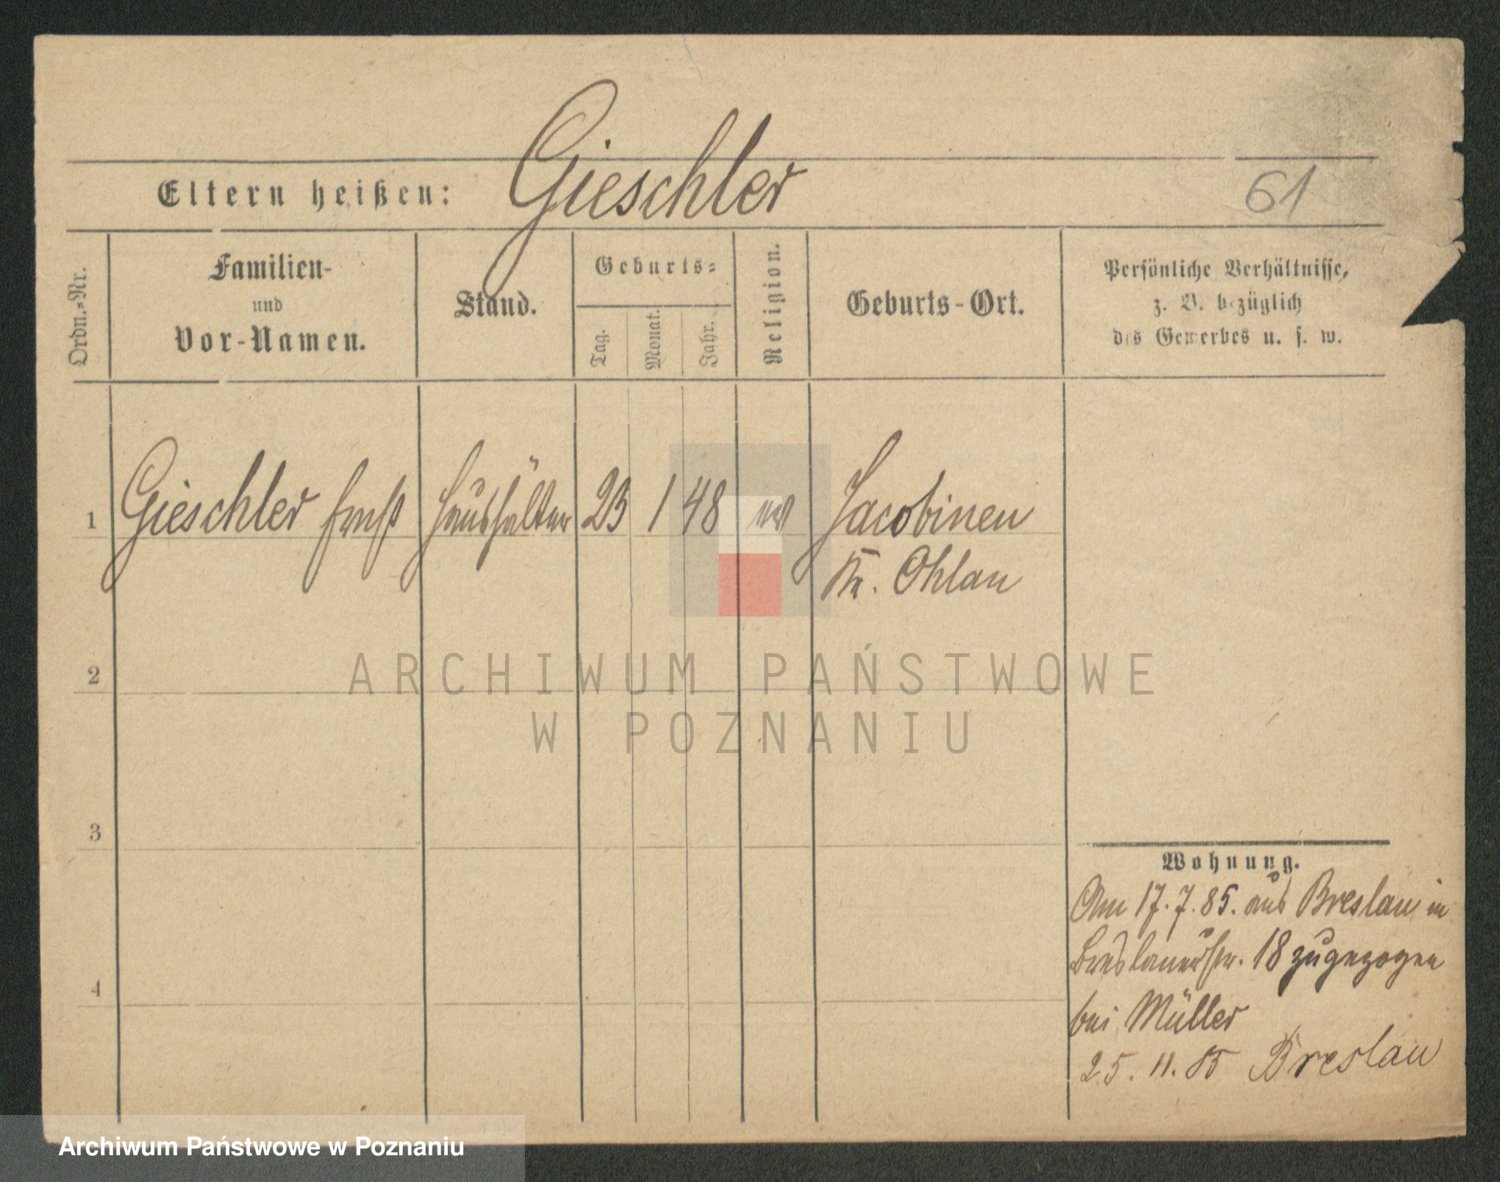 Gieschler
Eltern heißen:
61
Ordn.-Nr.
Familien-
und
Vor-Namen.
Stand.
Geburts-
Tag.
Monat.
Jahr.
Religion.
Geburts-Ort.
Persönliche Verhältnisse,
z. B. bezüglich
des Gewerbes u. s. w.
1 Gieschler Ernst Haushälter 23 1 48 ev Jacobinen
Kr. Ohlau
2
3
4
Wohnung.
Am 17.7.85. aus Breslau in
Breslauerstr. 18 zugezogen
bei Müller
25. 11. 85 Breslau
ARCHIWUM PAŃSTWOWE
W POZNANIU
Archiwum Państwowe w Poznaniu